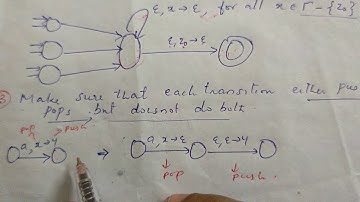 ε, x→ε, for all x∈Γ-{z₀}
ε, z₀→ε
③ Make sure that each transition either pus
pops, but doesnot do both.
pop push
a, x→y ⇒ a, x→ε ε, ε→y
pop push